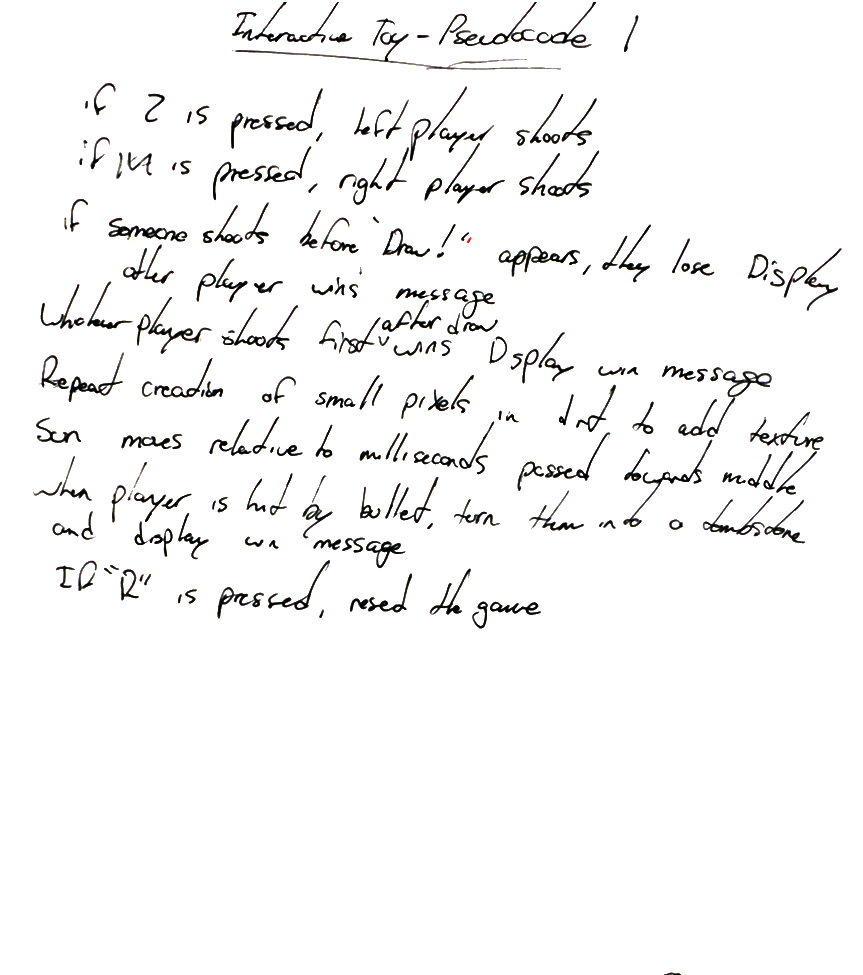 Interactive Toy - Pseudocode 1
if Z is pressed, left player shoots
if M is pressed, right player shoots
if someone shoots before "Draw!" appears, they lose Display
other player wins message
Whatever player shoots first after draw wins Display win message
Repeat creation of small pixels in dirt to add texture
Sun moves relative to milliseconds passed towards middle
when player is hit by bullet, turn them into a tombstone
and display win message
If "R" is pressed, reset the game